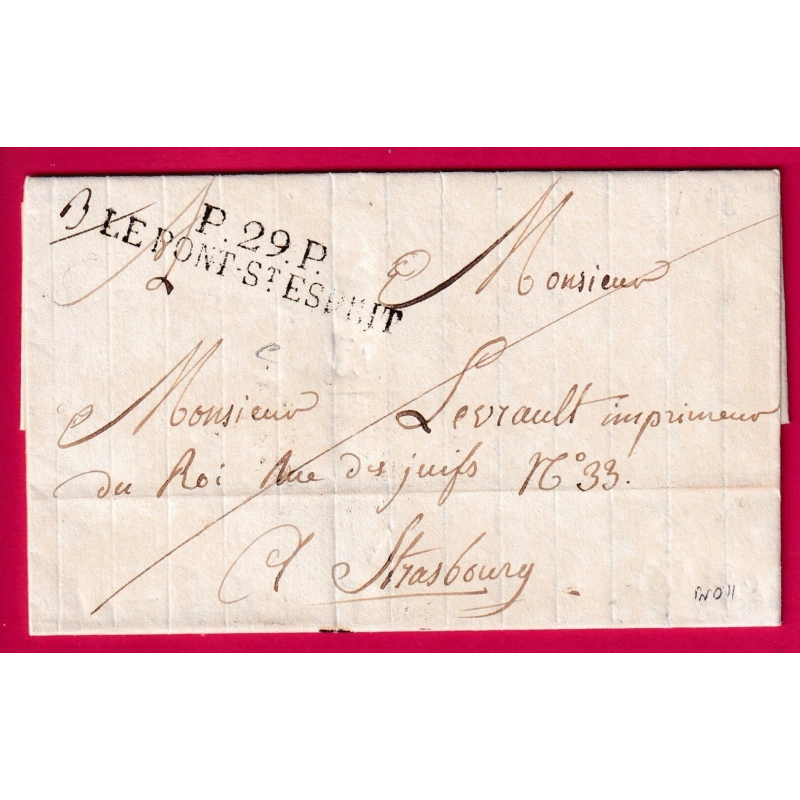 P.29.P.
LE PONT-ST ESPRIT
A Monsieur
Monsieur Levrault imprimeur
du Roi Rue des juifs N° 33.
A Strasbourg